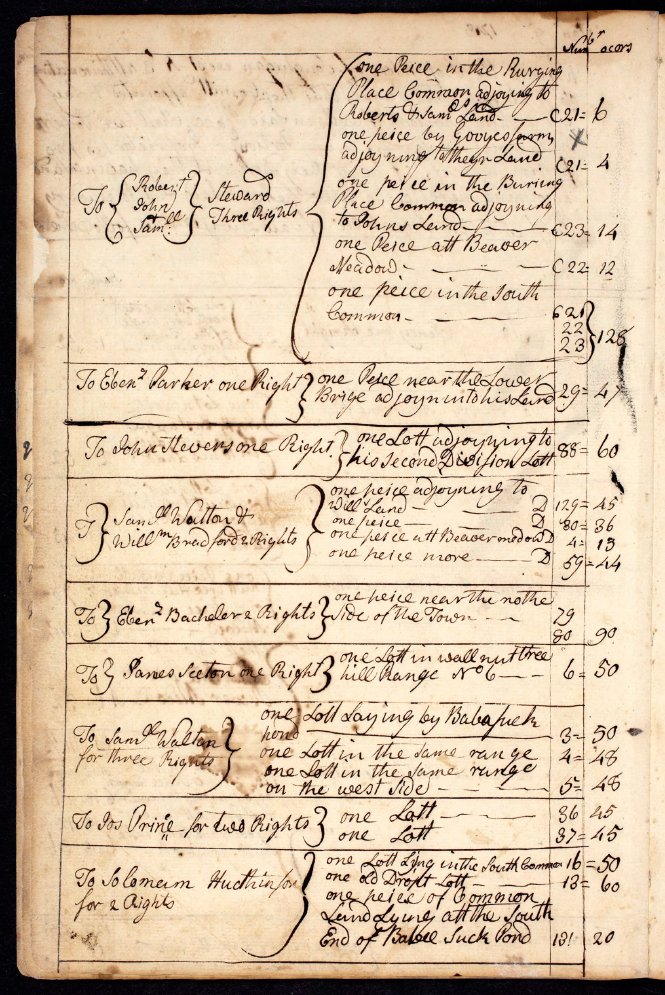 Numbr acors
one Peice in the Burying
Place Common adjoying to
Roberts & Saml Land — C21= 6
one peice by Govyes farm
adjoyning to theyr Land C21= 4
To { Robert John Samll } Steward Three Rights
one peice in the Buring
Place Common adjoyning
to Johns Land — C23= 14
one Peice att Beaver
Meadow — C22= 12
one peice in the South
Common — C21
22
23 } 128
To Ebenz Parker one Right } one Peice near the Lower
Brige adjoyn into his Land 29= 47
To John Stevers one Right } one Lott adjoyning to
his Second Division Lott 88= 60
To } Samll Walton &
Willm Bradford 2 Rights
one peice adjoyning to
Wills Land — D 129= 45
one peice — D 80= 36
one peice att Beaver medow D 4= 13
one peice more — D 59= 44
To } Ebenz Bacheler 2 Rights } one peice near the nothe
Side of the Town — 79
80 90
To } James Seeton one Right } one Lott in wall nut tree
hill Range No 6 — 6= 50
To Samll Walton
for three Rights
one Lott Laying by Babasuck
pond — 3= 50
one Lott in the same range 4= 48
one Lott in the same range
on the west side — 5= 48
To Jos Prince for two Rights } one Lott — 36 45
one Lott 37= 45
To Solomam Huthinson
for 2 Rights
one Lott Lying in the South Common 16= 50
one old Dropt Lott — 13= 60
one peice of Common
Land Lying att the South
End of Babee Suck Pond 131 20